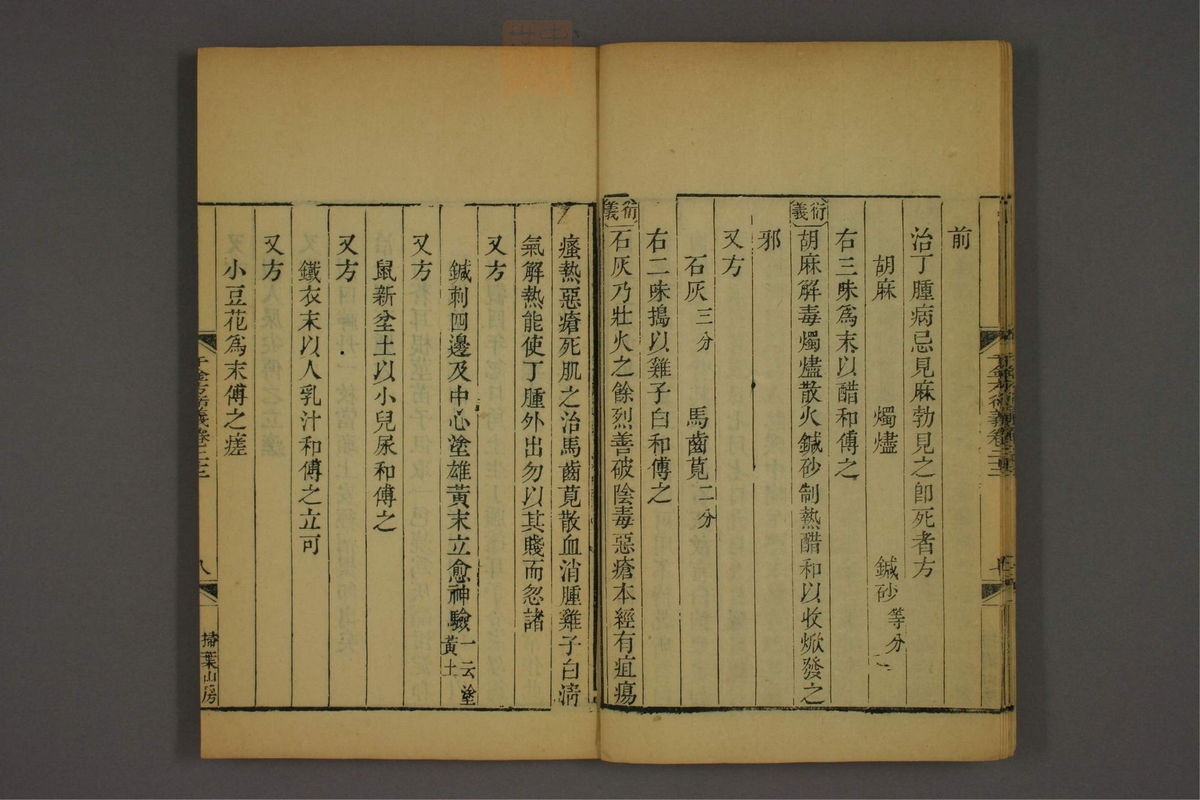 前
治丁腫病忌見麻勃見之即死者方
胡麻 燭燼 鍼砂等分
右三味爲末以醋和傅之
衍義 胡麻解毒燭燼散火鍼砂制熱醋和以收焮發之
邪
又方
石灰三分 馬齒莧二分
右二味搗以雞子白和傅之
衍義 石灰乃壯火之餘烈善破陰毒惡瘡本經有疽瘍
瘙熱惡瘡死肌之治馬齒莧散血消腫雞子白淸
氣解熱能使丁腫外出勿以其賤而忽諸
又方
鍼刺四邊及中心塗雄黃末立愈神驗一云塗黃土
又方
鼠新坌土以小兒尿和傅之
又方
鐵衣末以人乳汁和傅之立可
又方
小豆花爲末傅之瘥
千金方衍義卷二十二
八
掃葉山房